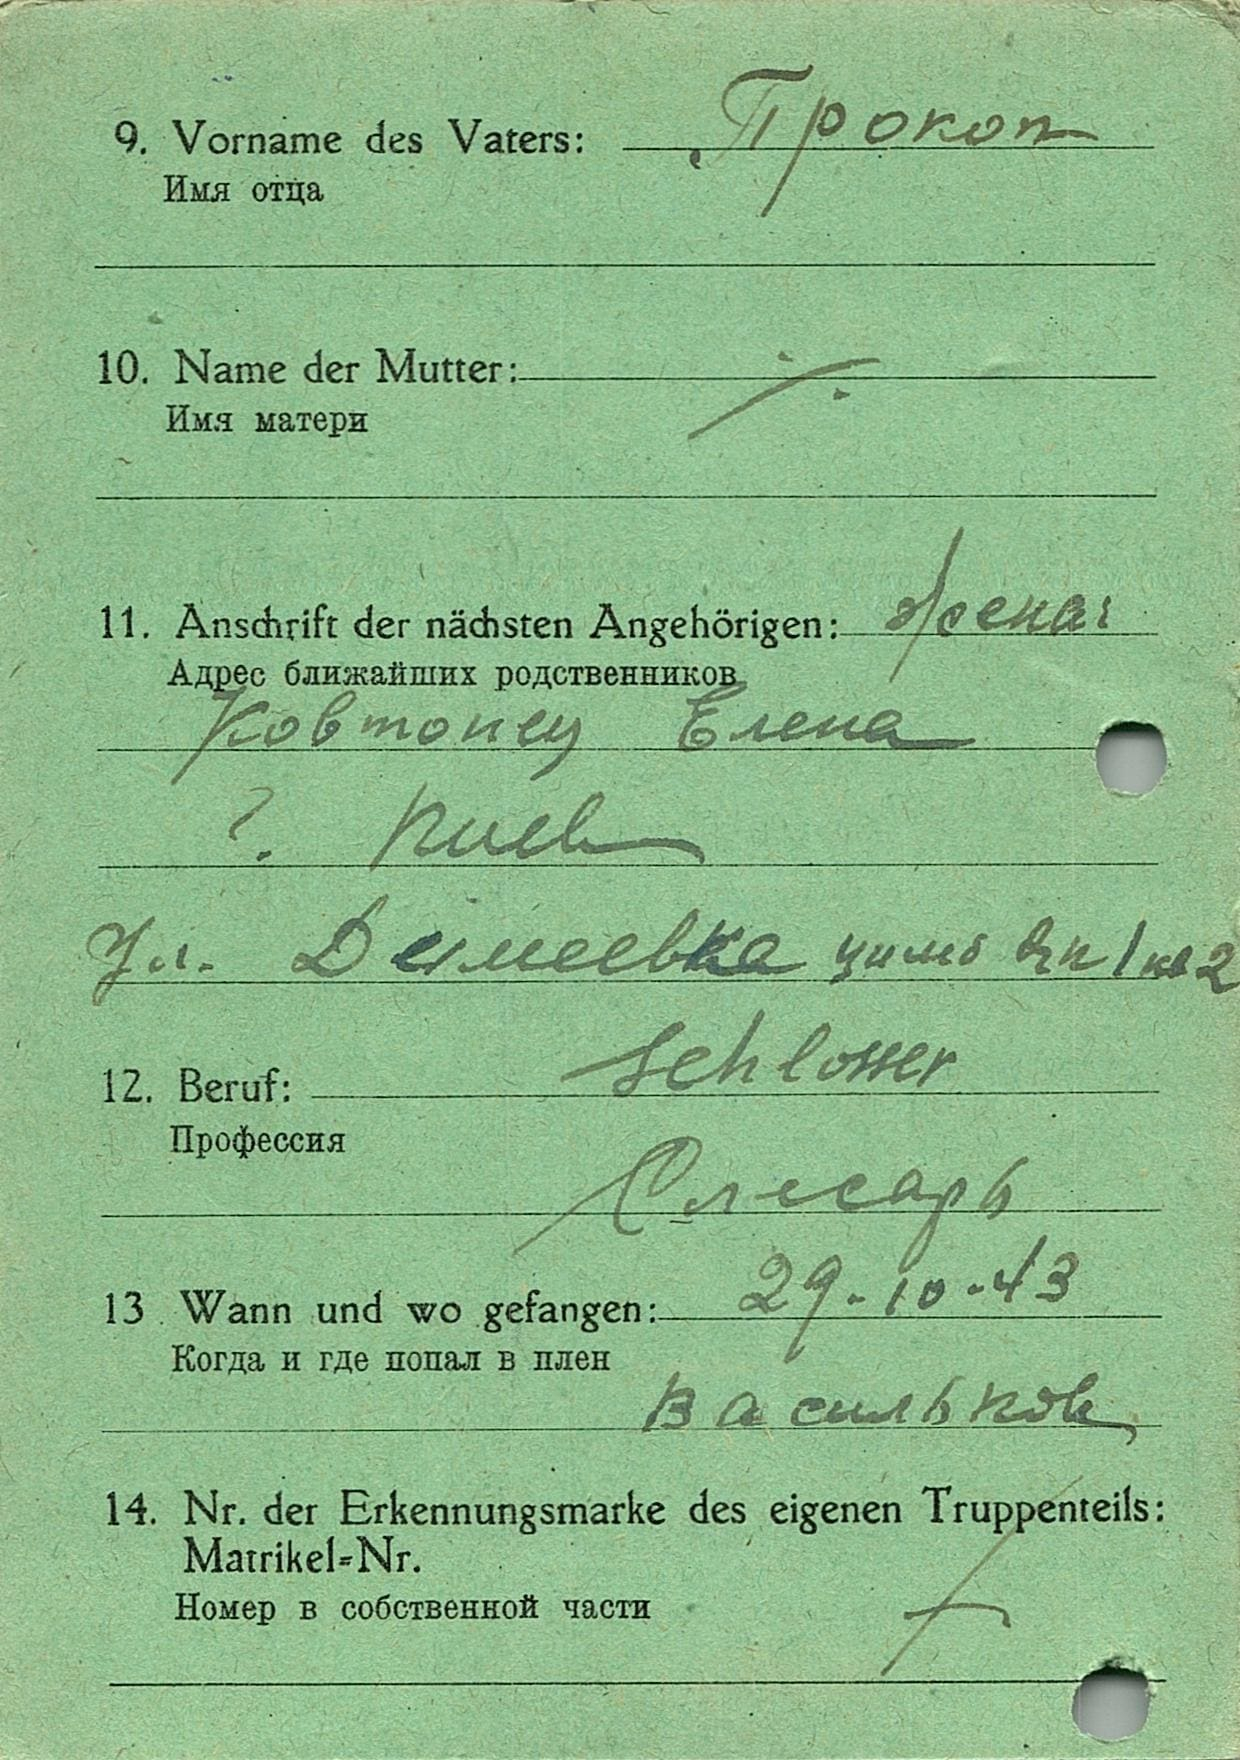 9. Vorname des Vaters: Прокоп
Имя отца
10. Name der Mutter: ⁒
Имя матери
11. Anschrift der nächsten Angehörigen: Жена:
Адрес ближайших родственников
Ковтонец Елена
г. Киев
Ул. Демеевка 1 кв 2
12. Beruf: Schlosser
Профессия
Слесарь
13. Wann und wo gefangen: 29.10.43
Когда и где попал в плен
Васильков
14. Nr. der Erkennungsmarke des eigenen Truppenteils:
Matrikel-Nr.
Номер в собственной части